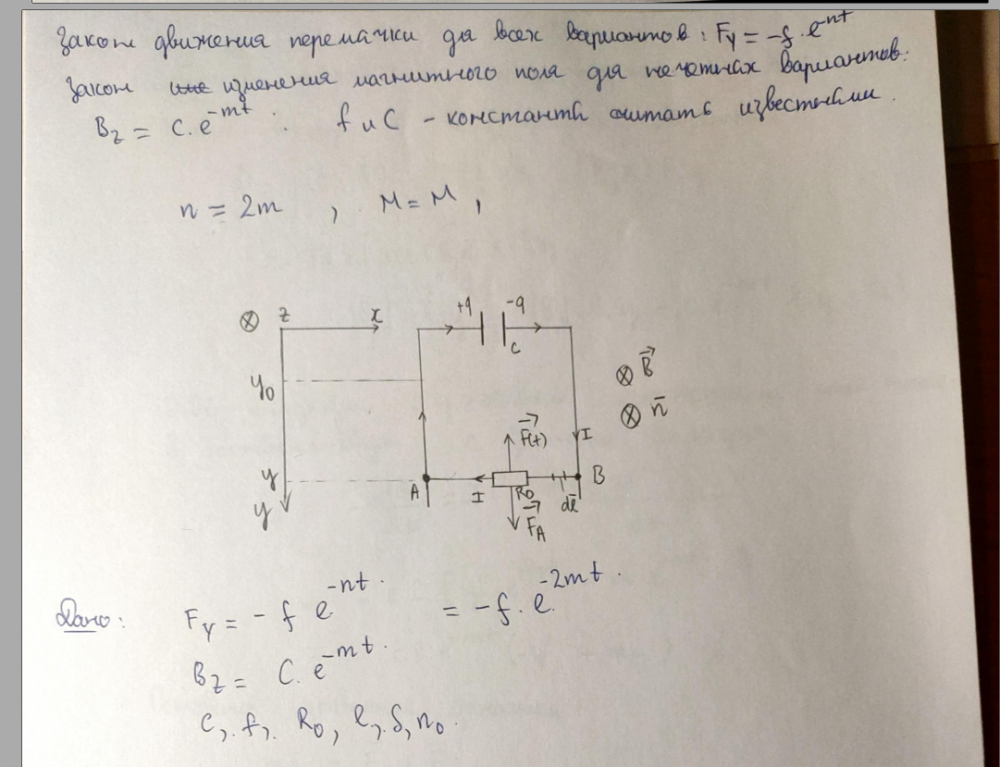 Закон движения перемычки для всех вариантов: Fy = -f · e^-nt
Закон изменения магнитного поля для нечетных вариантов:
Bz = C · e^-mt . f и C - константы считать известными.
n = 2m , M = M ,
⊗ z x +q -q
C
y0
⊗ B⃗
⊗ n̄
F⃗(t) I
y A I R0 dl̄ B
y F⃗A
Дано: Fy = - f e^-nt = -f · e^-2mt .
Bz = C · e^-mt .
C, f, R0, l, S, n0.